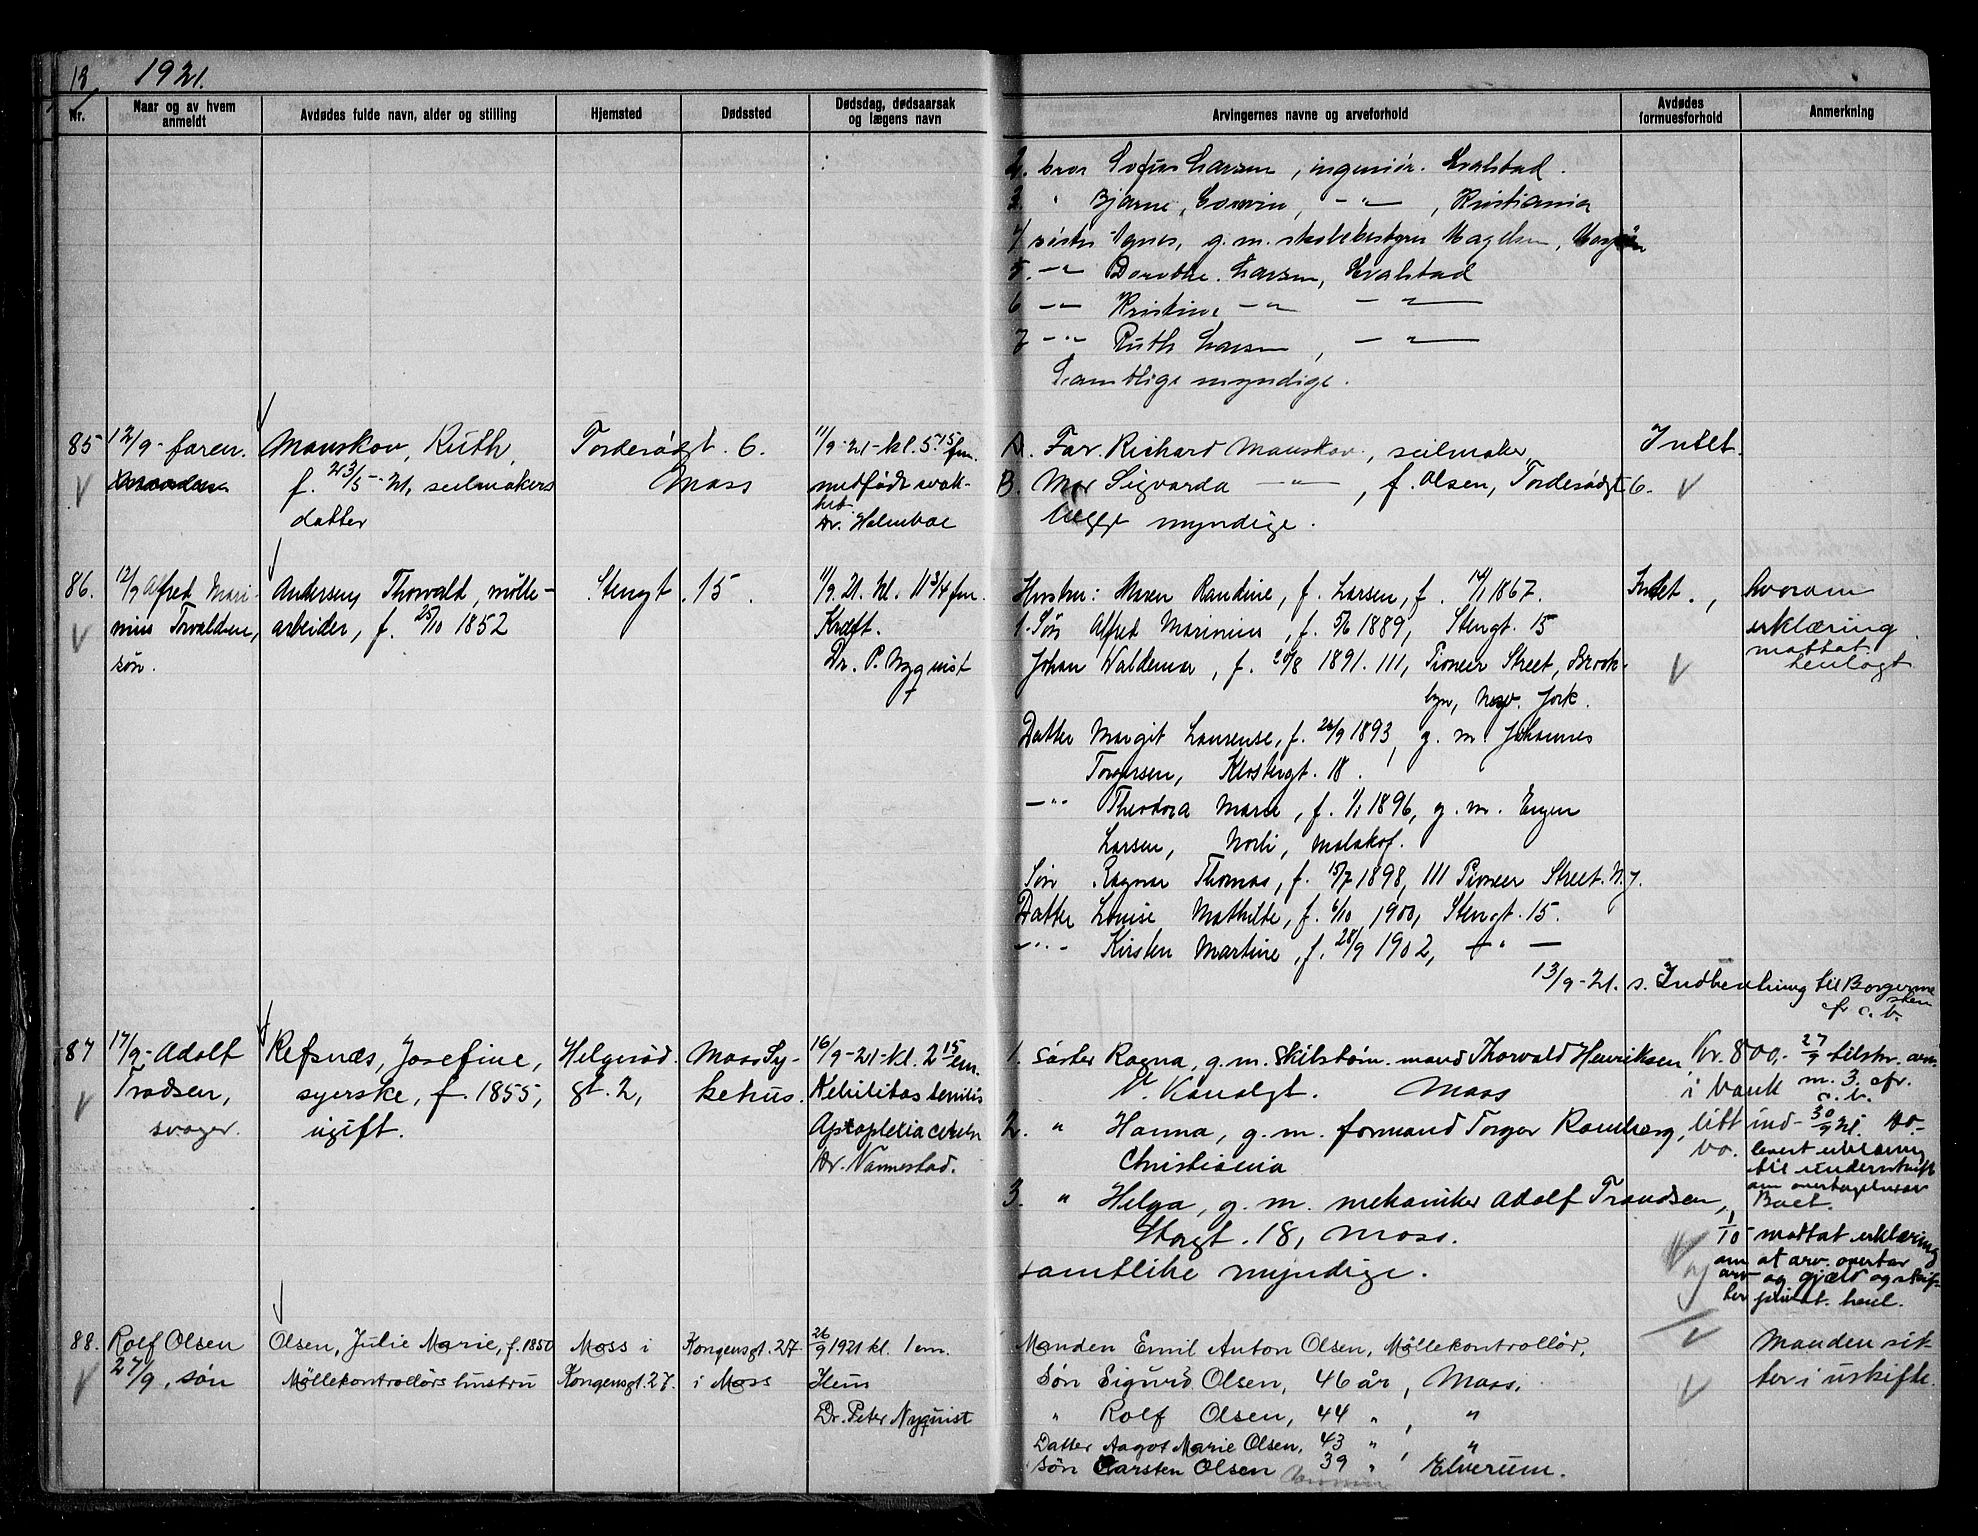 12 1921.
Nr.
Naar og av hvem anmeldt
Avdødes fulde navn, alder og stilling
Hjemsted
Dødssted
Dødsdag, dødsaarsak og lægens navn
Arvingernes navne og arveforhold
Avdødes formuesforhold
Anmerkning
2. bror Sofus Larsen, ingeniør. Hvalstad.
3. " Bjarne, Larsen, — " — , Kristiania
4 søster Agnes, g. m. skolebestyrer
5. — " Dorothe Larsen, Hvalstad
6 — " Kristine — " — " —
7 — " Ruth Larsen, — " —
Samtlige myndige.
85 12/9- faren.
Mauskov, Ruth,
f. 23/5-21, seilmakers
datter
Tordenskj
Tordesødgt. 6.
Moss
11/9-21- kl. 5.15 fm.
medfødt svak-
het
Dr. Holmboe
A. Far. Richard Mauskov, seilmaker,
B. Mor Sigvarda — " — , f. Olsen, Tordesødgt 6.
begge myndige.
Intet.
86. 12/9 Alfred Mari-
nius Torvaldsen,
søn.
Andersen, Thorvald, mølle-
arbeider, f. 25/10 1852
Stengt. 15.
11/9 21. kl. 11 3/4 fm.
Kræft.
Dr. P. Nyquist
Hustru: Maren Randine, f. Larsen, f. 14/1 1867.
1. Søn Alfred Marinius, f. 5/6 1889, Stengt. 15
Johan Waldemar, f. 20/8 1891. 111, Pioneer Street, Brook-
lyn, New. York.
Datter Margit Laurense, f. 26/9 1893, g. m. Johannes
Torgersen, Klostergt. 18.
— " Theodora Marie, f. 1/1 1896, g. m. Eugen
Larsen, Norli, Malakof.
Søn Ragnar Thomas, f. 15/7 1898, 111 Pioneer Street. N.Y.
Datter Louise Mathilde, f. 6/10 1900, Stengt. 15.
— " — Kirsten Martine, f. 28/9 1902, — " —
Intet.,
hvorom
erklæring
mottat
henlagt
13/9-21. s. Indberetning til
cfr c.b.
87 17/9- Adolf
Trodsen,
svoger.
Refsnæs, Josefine,
syerske, f. 1855,
ugift.
Helgerød-
gt. 2,
Moss Sy-
kehus.
16/9-21- kl. 2 15 em.
Debilitas senilis
Apoplexia cerebri
Dr. Vannestad.
1. søster Ragna, g. m. skilsbom. mand Thorvald Henriksen,
V. Kanalgt. Moss
2. " Hanna, g. m. formand Torger Ramberg,
Christiania
3. " Helga, g. m. mekaniker Adolf Trandsen,
Storgt. 18, Moss.
samtlike myndige.
Kr. 800,-
i bank
litt ind-
bo.
27/9 tilskr. arv.
m. 3. cfr.
c. b.
30/9 21.
levert erklæring
til underskrift
om overtagelse av
Boet.
1/10 mottat erklæring
om at arv. overtar
arv og gjæld og skif-
ter privat. henl.
88. Rolf Olsen
27/9, søn
Olsen, Julie Marie, f. 1850
Møllekontrollørs hustru
Moss i
Kongensgt. 27.
Kongensgt. 27
i Moss
26/9 1921 kl. 1 em.
Ileus
Dr. Peter Nyquist
Manden Emil Anton Olsen, Møllekontrollør,
Søn Sigurd Olsen, 46 år, Moss.
" Rolf Olsen, 44 ", "
Datter Aagot Marie Olsen, 43 ", "
Søn Carsten Olsen 39 " Elverum.
Manden sit-
ter i uskifte.